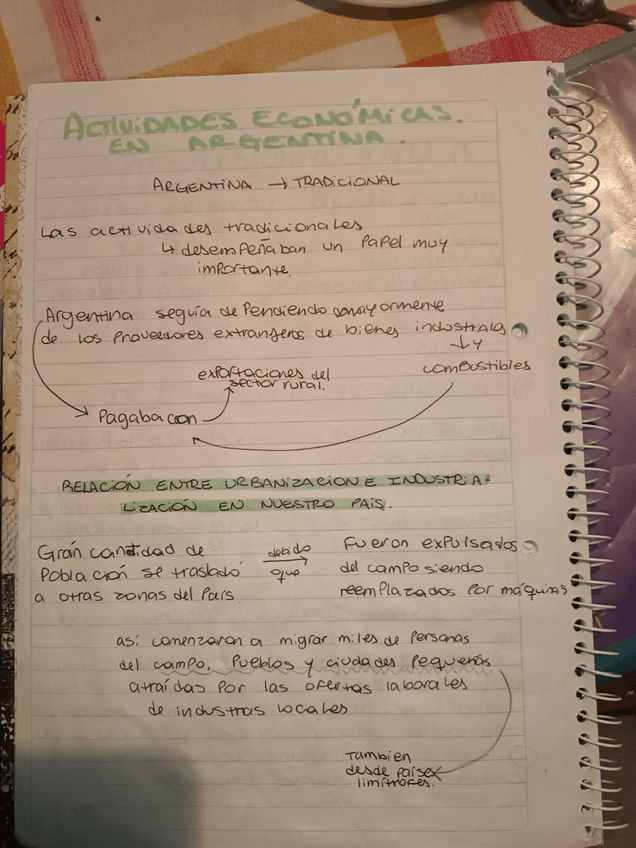 ACTIVIDADES ECONÓMICAS.
EN ARGENTINA.
ARGENTINA → TRADICIONAL
Las actividades tradicionales
↳ desempeñaban un papel muy
importante.
Argentina seguía dependiendo mayormente
de los proveedores extranjeros de bienes industriales
↓ y
combustibles
exportaciones del
sector rural.
Pagaba con
RELACIÓN ENTRE URBANIZACION E INDUSTRIA-
LIZACIÓN EN NUESTRO PAÍS.
Grán cantidad de
Población se trasladó
a otras zonas del País.
debido
→
que
Fueron expulsados
del campo siendo
reemplazados por máquinas
así comenzaron a migrar miles de personas
del campo, Pueblos y ciudades pequeñas
atraídas por las ofertas laborales
de industras locales
Tambien
desde países
limítrofes.